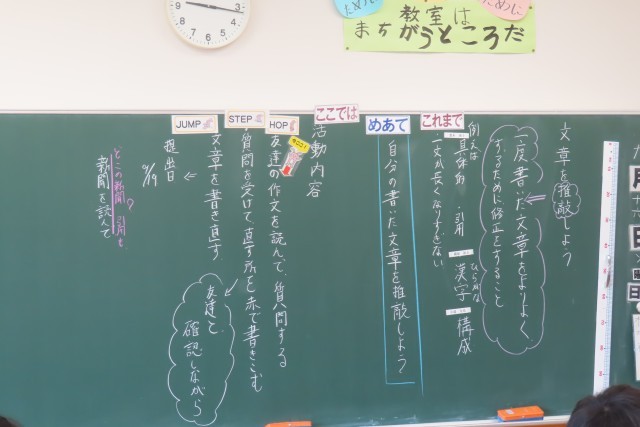 教室は
まちがうところだ
ために
ために
文章を推敲しよう
一度書いた文章をよりよく
するために修正をすること
これまで
例えば
具体的 引用 漢字 ひらがな 構成
一文が長くなりすぎない
めあて
自分の書いた文章を推敲しよう
ここでは
活動内容
HOP
友達の作文を読んで、質問する
STEP
質問を受けて直す所を赤で書きこむ
友達と
確認しながら
JUMP
文章を書き直す
提出日
9/19
どこの新聞? 引用も
新聞を読んで